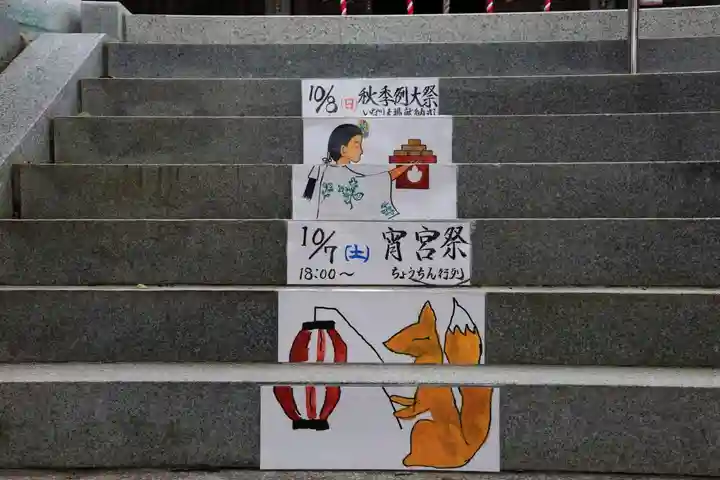 10/8 (日) 秋季例大祭
10/7 (土) 宵宮祭
18:00～ ちょうちん行列